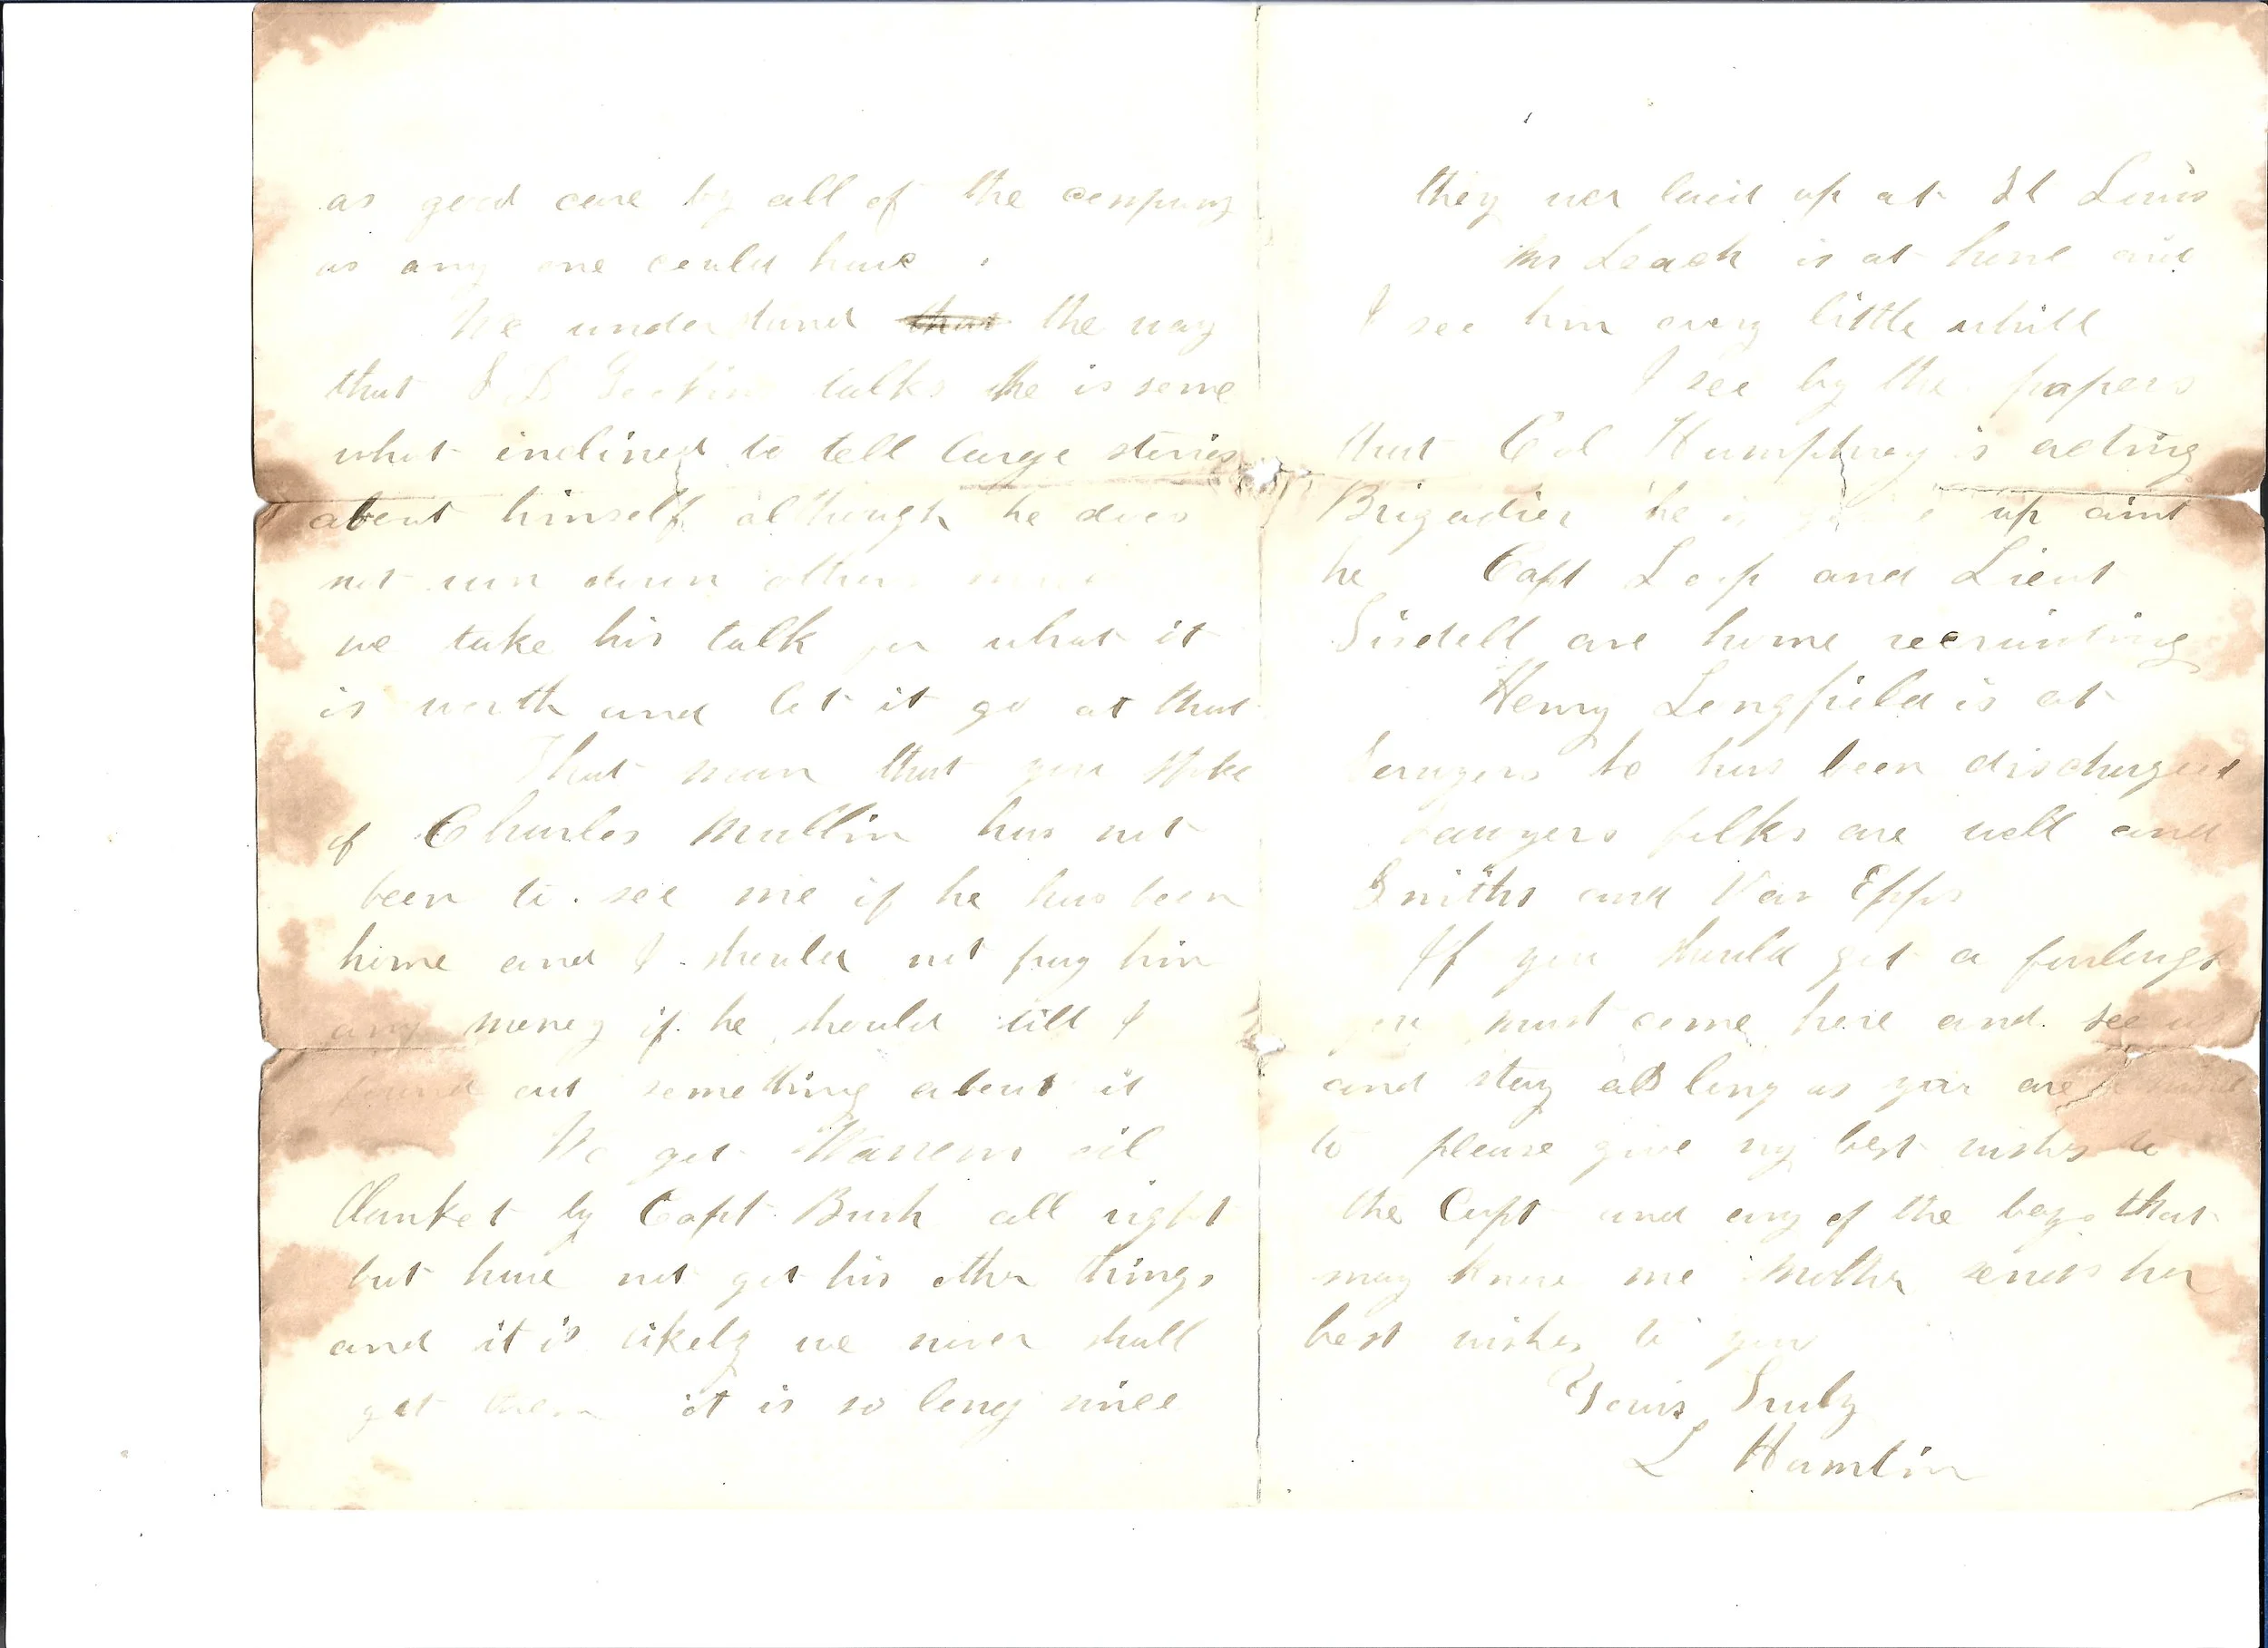 as good care by all of the company
as any one could have .
We understand that the way
that talks he is some
what inclined to tell large stories
about himself although he does
not run down others
we take his talk for what it
is worth and let it go at that
That man that you spoke
of Charles Mullin has not
been to see me if he has been
home and I should not pay him
any money if he should till I
found out something about it
We got Warrens oil
blanket by Capt Bush all right
but have not got his other things
and it is likely we never shall
get them it is so long since
they wer laid up at St Louis
Mr Leach is at home and
I see him every little while
I see by the papers
that Col Humphrey is acting
Brigadier he is up aint
he Capt Loop and Lieut
Sisdell are home recruiting
Henry Longfield is at
Sawyers he has been discharged
Sawyers folks are well and
Smiths and Van Epps
If you should get a furlough
you must come here and see us
and stay as long as you are
to please give my best wishes to
the Capt and any of the boys that
may know me Mother sends her
best wishes to you
Yours Truly
L Hamlin